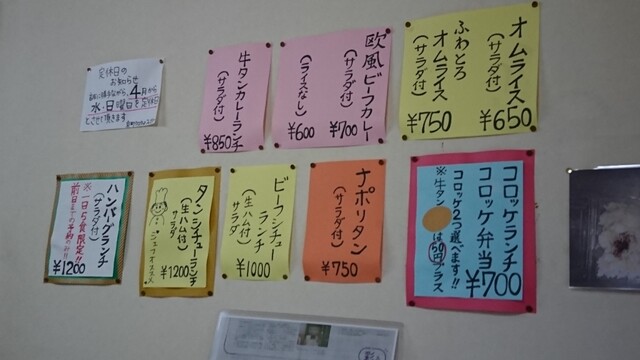 定休日の
お知らせ
4月から
水・日曜日を定休日
とさせて頂きます
牛タンカレーランチ
(サラダ付)
¥850
欧風ビーフカレー
(サラダ付)
¥700
(ライスなし)
¥600
オムライス
(サラダ付)
¥650
ふわとろ
オムライス
(サラダ付)
¥750
ハンバーグランチ
(サラダ付)
※一日5食限定!!
¥1200
タンシチューランチ
(生ハム付)
サラダ
¥1200
シェフオススメ
ビーフシチュー
ランチ
(生ハム付)
サラダ
¥1000
ナポリタン
(サラダ付)
¥750
コロッケランチ
コロッケ弁当
¥700
コロッケ2つ選べます!!
※牛タンは50円プラス